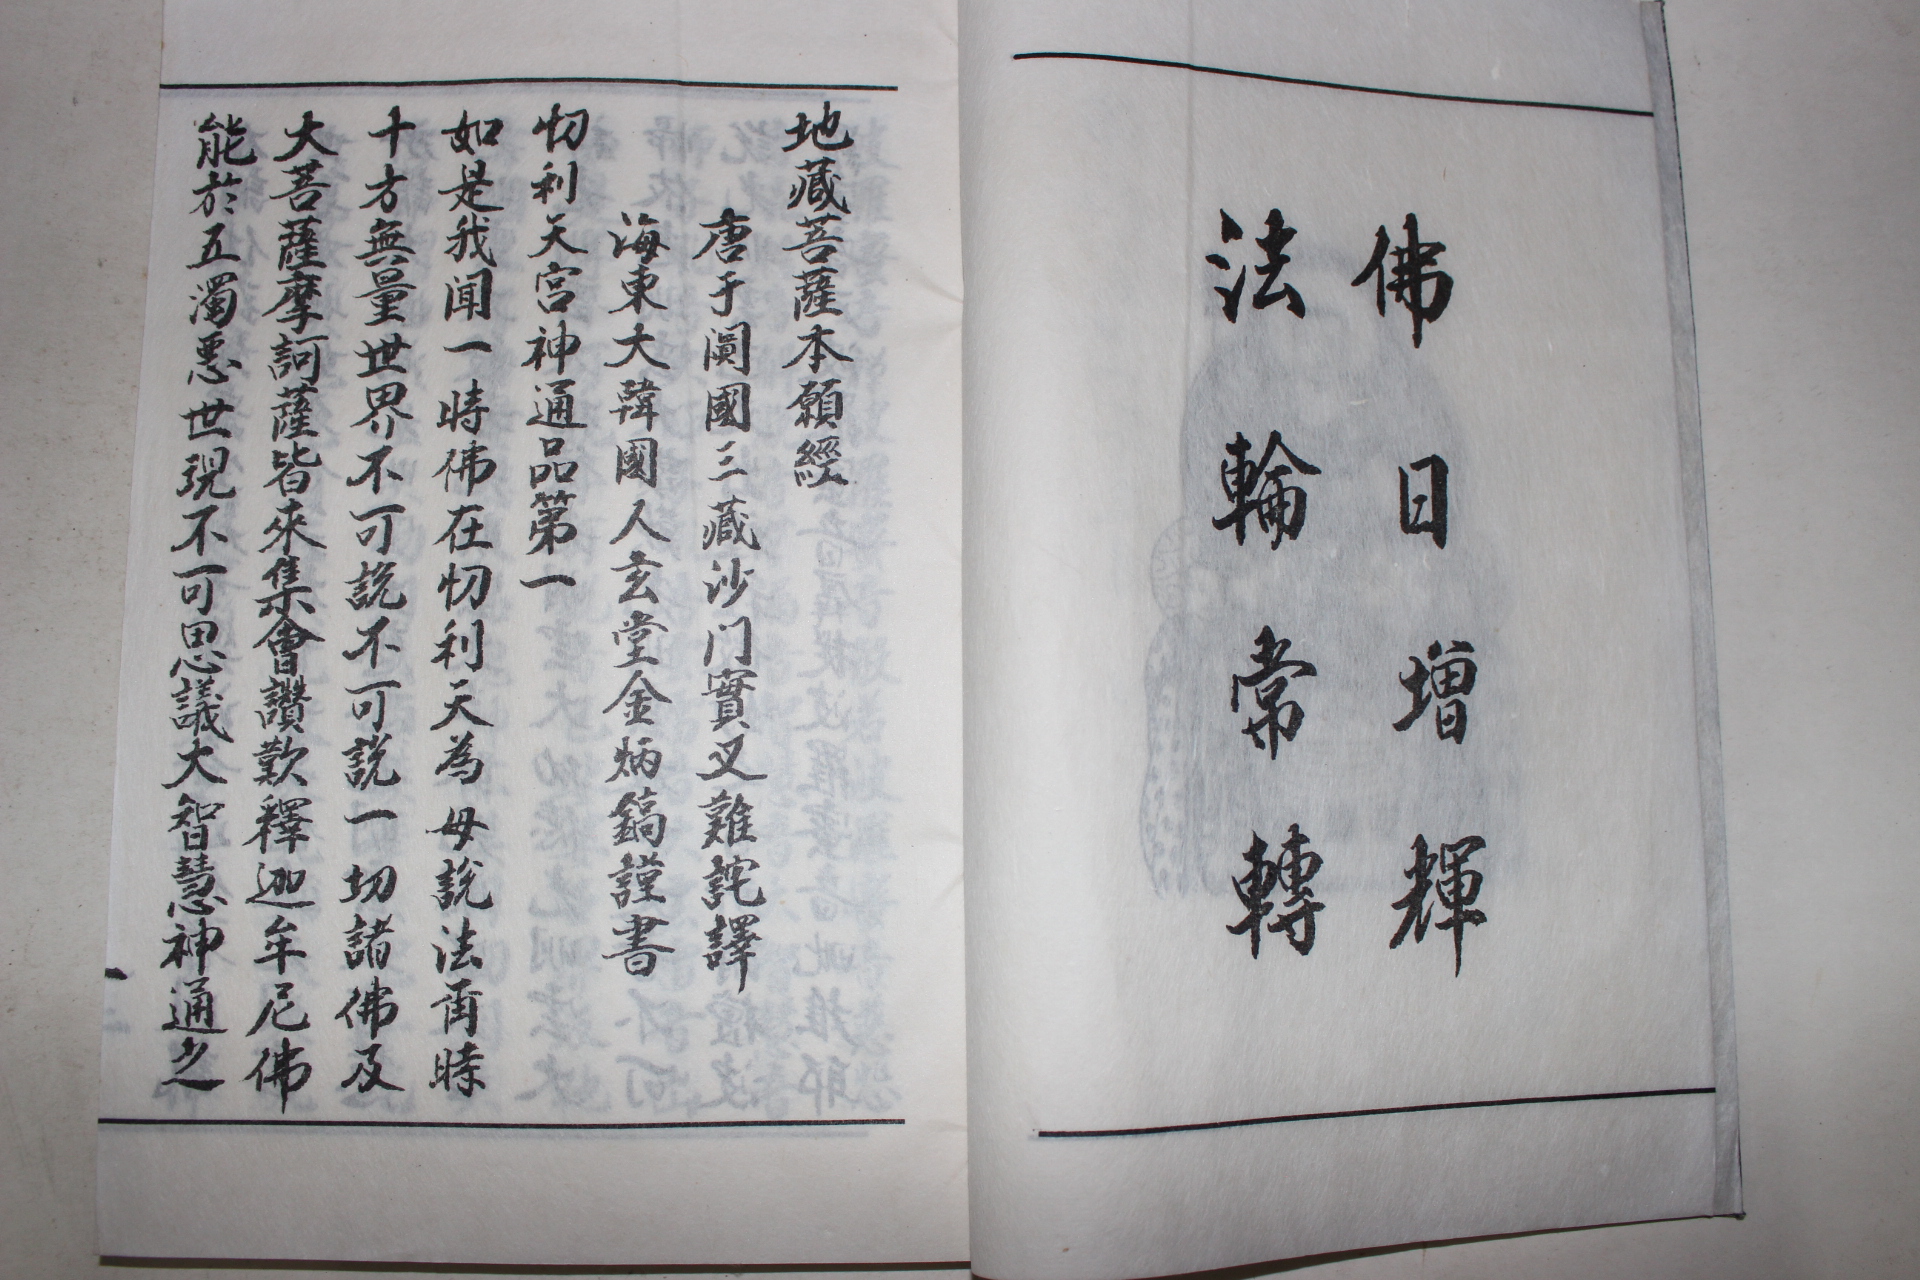 佛日增輝
法輪常轉
地藏菩薩本願經
唐于闐國三藏沙门實叉難詑譯
海東大韓國人玄堂金炳鎬謹書
忉利天宮神通品第一
如是我聞一時佛在忉利天為母說法甭時
十方無量世界不可說不可說一切諸佛及
大菩薩摩訶薩皆來集會讚歎釋迦牟尼佛
能於五濁惡世現不可思議大智慧神通之
一